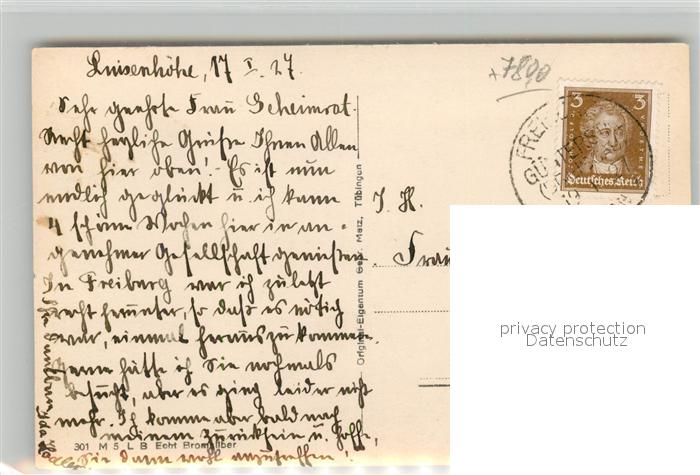 Luisenhöhe, 17 I. 27.
Sehr geehrte Frau Geheimrat.
Recht herzliche Grüße Ihnen Allen
von hier oben! Es ist nun
endlich geglückt u. ich kann
4 schöne Wochen hier in an-
genehmer Gesellschaft genießen.
In Freiburg war ich zuletzt
recht herunter, so daß es nötig
war, einmal herauszukommen.
Gerne hätte ich Sie nochmals
besucht, aber es ging leider nicht
mehr. Ich komme aber bald nach
meinem Zurücksein u. hoffe,
Sie dann wohl anzutreffen!
Ihre dankbare
+7890
3 3
GOETHE
Deutsches Reich
FREIB
GÜNTERS
I. H.
Frau
Original-Eigentum Gebr. Metz, Tübingen
301 M 5 L B Echt Bromsilber
privacy protection
Datenschutz